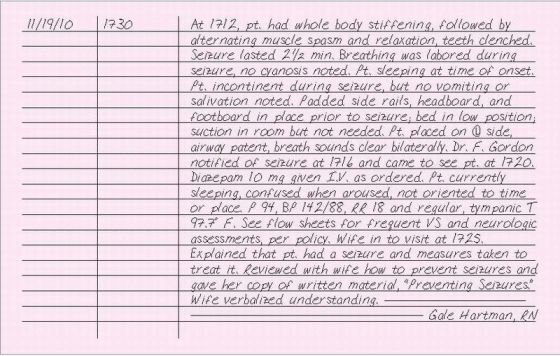 11/19/10 1730 At 1712, pt. had whole body stiffening, followed by
alternating muscle spasm and relaxation, teeth clenched.
Seizure lasted 2½ min. Breathing was labored during
seizure, no cyanosis noted. Pt. sleeping at time of onset.
Pt. incontinent during seizure, but no vomiting or
salivation noted. Padded side rails, headboard, and
footboard in place prior to seizure; bed in low position;
suction in room but not needed. Pt. placed on Ⓛ side,
airway patent, breath sounds clear bilaterally. Dr. F. Gordon
notified of seizure at 1716 and came to see pt. at 1720.
Diazepam 10 mg given I.V. as ordered. Pt. currently
sleeping, confused when aroused, not oriented to time
or place. P 94, BP 142/88, RR 18 and regular, tympanic T
97.7 F. See flow sheets for frequent VS and neurologic
assessments, per policy. Wife in to visit at 1725.
Explained that pt. had a seizure and measures taken to
treat it. Reviewed with wife how to prevent seizures and
gave her copy of written material, "Preventing Seizures."
Wife verbalized understanding.
Gale Hartman, RN